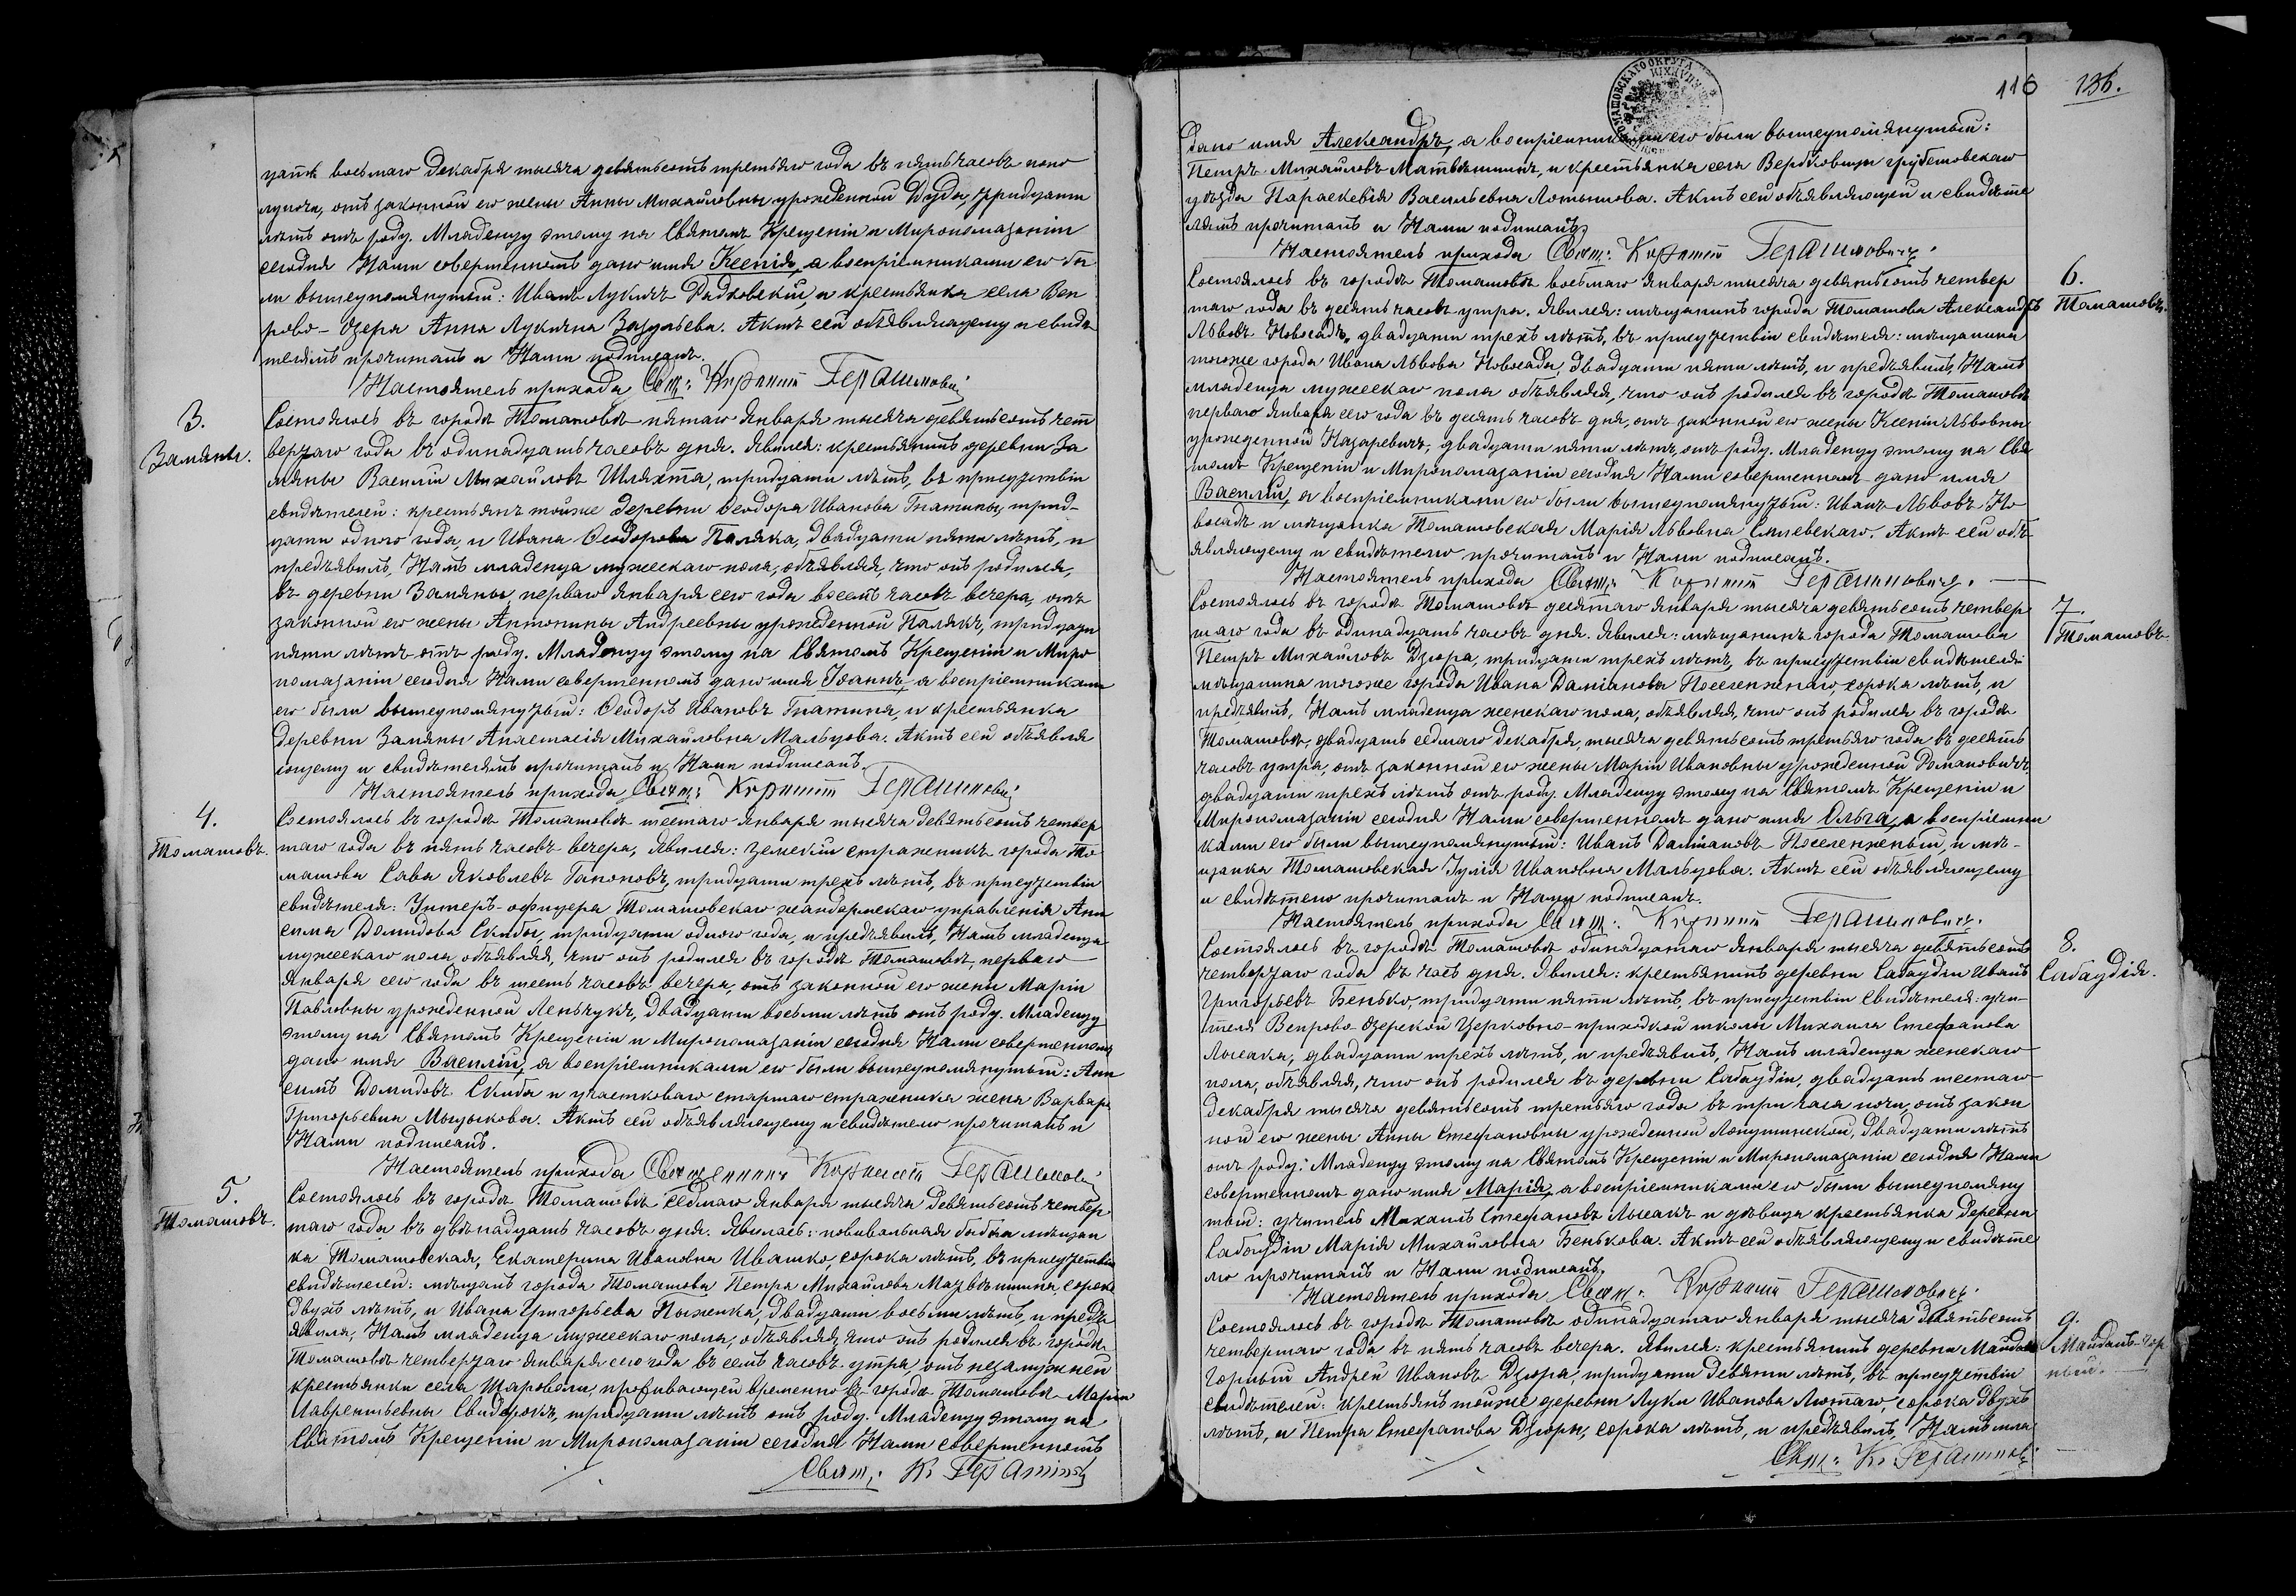 цать восьмаго Декабря тысяча девятьсотъ третьяго года въ пять часовъ попо
лудни, отъ законной его жены Анны Михайловны урожденной Дуда, тридцати
лѣтъ отъ роду. Младенцу этому на Святомъ Крещеніи и Миропомазаніи
сегодня Нами совершенномъ дано имя Ксенія, а воспріемниками его бы
ли вышеупомянутый: Иванъ Лукичъ Радковскій, и крестьянка села Веп
рово-Озера Анна Лукична Зазульева. Актъ сей объявляющему и свидѣ
телямъ прочитанъ и Нами подписанъ.
Настоятель прихода Свящ: Корнилій Герасимовичъ
3.
Замяны.
Состоялось въ городѣ Томашовѣ пятаго Января тысяча девятьсотъ чет
вертаго года въ одинадцать часовъ дня. Явился: крестьянинъ деревни За
мяны Василій Михайловъ Шляхта, тридцати лѣтъ, въ присутствіи
свидѣтелей: крестьянъ тойже деревни Ѳеодора Иванова Гнатины, трид-
цати одного года, и Ивана Ѳеодорова Паляка, двадцати пяти лѣтъ, и
предъявилъ Намъ младенца мужескаго пола, объявляя, что онъ родился,
въ деревни Замяны, перваго Января сего года восемь часовъ вечера, отъ
законной его жены Антонины Андреевны урожденной Палякъ, тридцати
пяти лѣтъ отъ роду. Младенцу этому на Святомъ Крещеніи и Миро
помазаніи сегодня Нами совершенномъ дано имя Іоаннъ, а воспріемниками
его были вышеупомянутый: Ѳеодоръ Ивановъ Гнатина, и крестьянка
деревни Замяны Анастасія Михайловна Мальцова. Актъ сей объявля
ющему и свидѣтелямъ прочитанъ и Нами подписанъ.
Настоятель прихода Свящ: Корнилій Герасимовичъ
4.
Томашовъ.
Состоялось въ городѣ Томашовѣ шестаго Января тысяча девятьсотъ четвер
таго года въ пять часовъ вечера, Явился: земскій стражникъ города То
машова Сава Яковлевъ Гапоновъ, тридцати трехъ лѣтъ, въ присутствіи
свидѣтеля: Унтеръ-офицера Томашовскаго жандармскаго управленія Ани
сима Домидова Скибы, тридцати одного года, и предъявилъ Намъ младенца
мужескаго пола, объявляя, что онъ родился въ городѣ Томашовѣ, перваго
Января сего года въ шесть часовъ вечера, отъ законной его жены Маріи
Павловны урожденной Леньчукъ, двадцати восьми лѣтъ отъ роду. Младенцу
этому на Святомъ Крещеніи и Миропомазаніи сегодня Нами совершенномъ
дано имя Василій, а воспріемниками его были вышеупомянутый: Ани
симъ Домидовъ Скиба и участковаго старшаго стражника жена Варвара
Григорьевна Мыцыкова. Актъ сей объявляющему и свидѣтелю прочитанъ и
Нами подписанъ.
Настоятель прихода Священникъ Корнилій Герасимовичъ
5.
Томашовъ.
Состоялось въ городѣ Томашовѣ седмаго Января тысяча девятьсотъ четвер
таго года въ двѣнадцать часовъ дня. Явилась: повивальная бабка мѣщан
ка Томашовская, Екатерина Ивановна Ивашко, сорока лѣтъ, въ присутствіи
свидѣтелей: мѣщанъ города Томашова Петра Михайлова Матвѣишина, сорока
двухъ лѣтъ, и Ивана Григорьева Пыженка, двадцати восьми лѣтъ, и предъ
явила, Намъ младенца мужескаго пола, объявляя, что онъ родился въ городѣ
Томашовѣ четвертаго Января сего года въ семь часовъ утра, отъ незамужней
крестьянки села Шароволи, проживающей временно въ городѣ Томашовѣ Маріи
Лаврентьевны Свидерокъ, тридцати лѣтъ отъ роду. Младенцу этому на
Святомъ Крещеніи и Миропомазаніи сегодня Нами совершенномъ
Свящ: К. Герасимовъ
116 136.
дано имя Александръ, а воспріемниками его были вышеупомянутый:
Петръ Михайловъ Матвѣишинъ, и крестьянка села Вербковицы грубешовскаго
уѣзда Параскевія Васильевна Лотышова. Актъ сей объявляющей и свидѣте
лямъ прочитанъ и Нами подписанъ
Настоятель прихода Свящ: Корнилій Герасимовичъ.
6.
Томашовъ.
Состоялось въ городѣ Томашовѣ восьмаго Января тысяча девятьсотъ четвер
таго года въ девять часовъ утра. Явился: мѣщанинъ города Томашова Александръ
Львовъ Новосадъ, двадцати трехъ лѣтъ, въ присутствіи свидѣтеля: мѣщанина
тогоже города Ивана Львова Новосада, двадцати пяти лѣтъ, и предъявилъ, Намъ
младенца мужескаго пола объявляя, что онъ родился въ городѣ Томашовѣ
перваго Января сего года въ десять часовъ дня, отъ законной его жены Ксеніи Львовны
урожденной Назаревичъ, двадцати пяти лѣтъ, отъ роду. Младенцу этому на Свя
томъ Крещеніи и Миропомазаніи сегодня Нами совершенномъ дано имя
Василій, а воспріемниками его были вышеупомянутый: Иванъ Львовъ Но
восадъ и мѣщанка Томашовская Марія Львовна Синевскаго. Актъ сей объ
являющему и свидѣтелю прочитанъ и Нами подписанъ.
Настоятель прихода Свящ: Корнилій Герасимовичъ.
7.
Томашовъ.
Состоялось въ городѣ Томашовѣ десятаго Января тысяча девятьсотъ четвер
таго года въ одинадцать часовъ дня. Явился: мѣщанинъ города Томашова
Петръ Михайловъ Дзюра, тридцати трехъ лѣтъ, въ присутствіи свидѣтеля:
мѣщанина тогоже города Ивана Даміанова Поселенжнаго, сорока лѣтъ, и
предъявилъ, Намъ младенца женскаго пола, объявляя, что онъ родился въ городѣ
Томашовѣ, двадцать седмаго Декабря, тысяча девятьсотъ третьяго года въ десять
часовъ утра, отъ законной его жены Маріи Ивановны урожденной Романовичъ,
двадцати трехъ лѣтъ отъ роду. Младенцу этому на Святомъ Крещеніи и
Миропомазаніи сегодня Нами совершенномъ дано имя Ольга, а воспріемни
ками его были вышеупомянутый: Иванъ Даміановъ Поселенжный, и мѣ-
щанка Томашовская Іулія Ивановна Мальцова. Актъ сей объявляющему
и свидѣтелю прочитанъ и Нами подписанъ.
Настоятель прихода Свящ: Корнилій Герасимовичъ.
8.
Сабаудія.
Состоялось въ городѣ Томашовѣ одинадцатаго Января тысяча девятьсотъ
четвертаго года въ часъ дня. Явился: крестьянинъ деревни Сабаудіи Иванъ
Григорьевъ Бенько, тридцати пяти лѣтъ, въ присутствіи свидѣтеля: учи-
теля Вепрово-Озерской Церковно-приходской школы Михаила Стефанова
Лысака, двадцати трехъ лѣтъ, и предъявилъ, Намъ младенца женскаго
пола, объявляя, что онъ родился въ деревни Сабаудіи, двадцать шестаго
Декабря тысяча девятьсотъ третьяго года въ три часа ночи, отъ закон
ной его жены Анны Стефановны урожденной Лопушинской, двадцати лѣтъ
отъ роду. Младенцу этому на Святомъ Крещеніи и Миропомазаніи сегодня Нами
совершенномъ дано имя Марія, а воспріемниками его были вышеупомяну
тый: учитель Михаилъ Стефановъ Лысакъ и дѣвица крестьянка деревни
Сабаудіи Марія Михайловна Бенькова. Актъ сей объявляющему и свидѣте
лю прочитанъ и Нами подписанъ.
Настоятель прихода Свящ: Корнилій Герасимовичъ.
9.
Майданъ-гор
ный.
Состоялось въ городѣ Томашовѣ одинадцатаго Января тысяча девятьсотъ
четвертаго года въ пять часовъ вечера. Явился: крестьянинъ деревни Майданъ
Горный Андрей Ивановъ Дзюра, тридцати девяти лѣтъ, въ присутствіи
свидѣтелей: крестьянъ тойже деревни Луки Иванова Лютаго, сорока двухъ
лѣтъ, и Петра Стефанова Дзюры, сорока лѣтъ, и предъявилъ, Намъ мла
Свящ: К. Герасимов